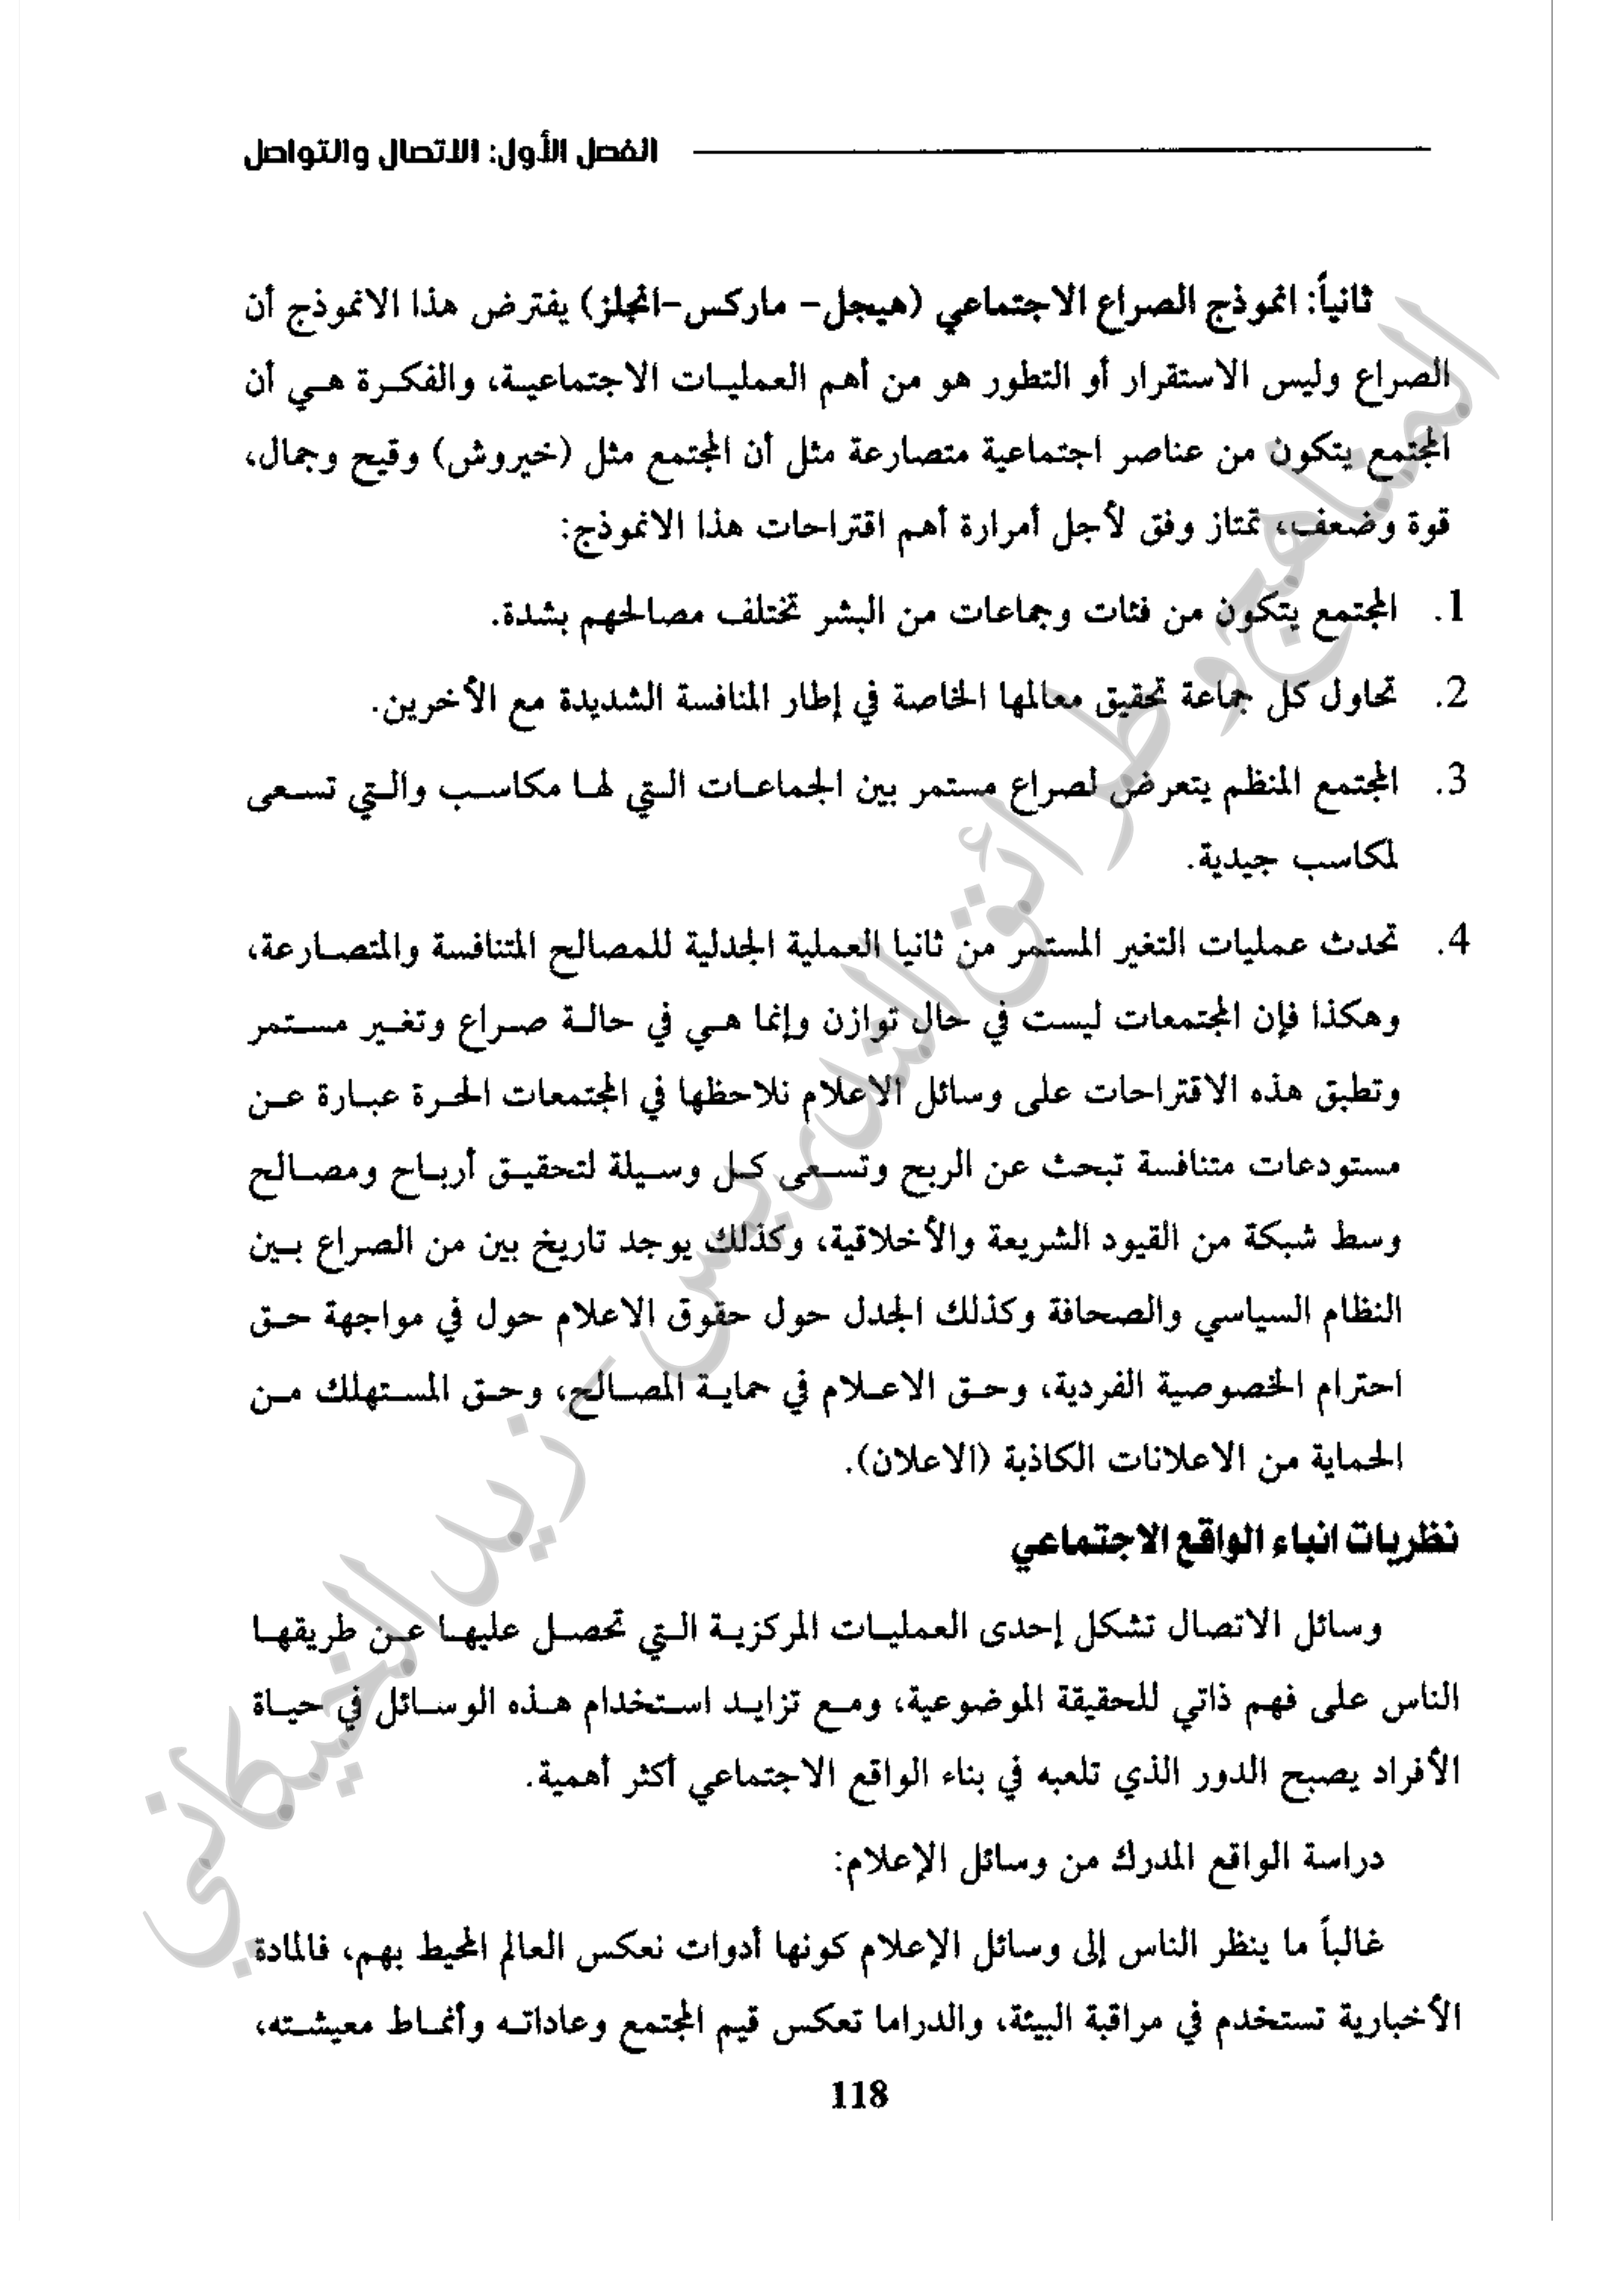 الفصل الأول: الاتصال والتواصل
ثانياً: انموذج الصراع الاجتماعي (هيجل- ماركس-انجلز) يفترض هذا الانموذج أن
الصراع وليس الاستقرار أو التطور هو من أهم العمليات الاجتماعية، والفكرة هي أن
المجتمع يتكون من عناصر اجتماعية متصارعة مثل أن المجتمع مثل (خيروش) وقيح وجمال،
قوة وضعف، تمتاز وفق لأجل أمرارة أهم اقتراحات هذا الانموذج:
1. المجتمع يتكون من فئات وجماعات من البشر تختلف مصالحهم بشدة.
2. تحاول كل جماعة تحقيق معالمها الخاصة في إطار المنافسة الشديدة مع الأخرين.
3. المجتمع المنظم يتعرض لصراع مستمر بين الجماعات التي لها مكاسب والتي تسعى
لمكاسب جيدية.
4. تحدث عمليات التغير المستمر من ثانيا العملية الجدلية للمصالح المتنافسة والمتصارعة،
وهكذا فإن المجتمعات ليست في حال توازن وإنما هي في حالة صراع وتغير مستمر
وتطبق هذه الاقتراحات على وسائل الاعلام نلاحظها في المجتمعات الحرة عبارة عن
مستودعات متنافسة تبحث عن الربح وتسعى كل وسيلة لتحقيق أرباح ومصالح
وسط شبكة من القيود الشريعة والأخلاقية، وكذلك يوجد تاريخ بين من الصراع بين
النظام السياسي والصحافة وكذلك الجدل حول حقوق الاعلام حول في مواجهة حق
احترام الخصوصية الفردية، وحق الاعلام في حماية المصالح، وحق المستهلك من
الحماية من الاعلانات الكاذبة (الاعلان).
نظريات انباء الواقع الاجتماعي
وسائل الاتصال تشكل إحدى العمليات المركزية التي تحصل عليها عن طريقها
الناس على فهم ذاتي للحقيقة الموضوعية، ومع تزايد استخدام هذه الوسائل في حياة
الأفراد يصبح الدور الذي تلعبه في بناء الواقع الاجتماعي أكثر أهمية.
دراسة الواقع المدرك من وسائل الإعلام:
غالباً ما ينظر الناس إلى وسائل الإعلام كونها أدوات نعكس العالم المحيط بهم، فالمادة
الأخبارية تستخدم في مراقبة البيئة، والدراما تعكس قيم المجتمع وعاداته وأنماط معيشته،
118
المناهج وطرائق التدريس - زيد الخيكاني